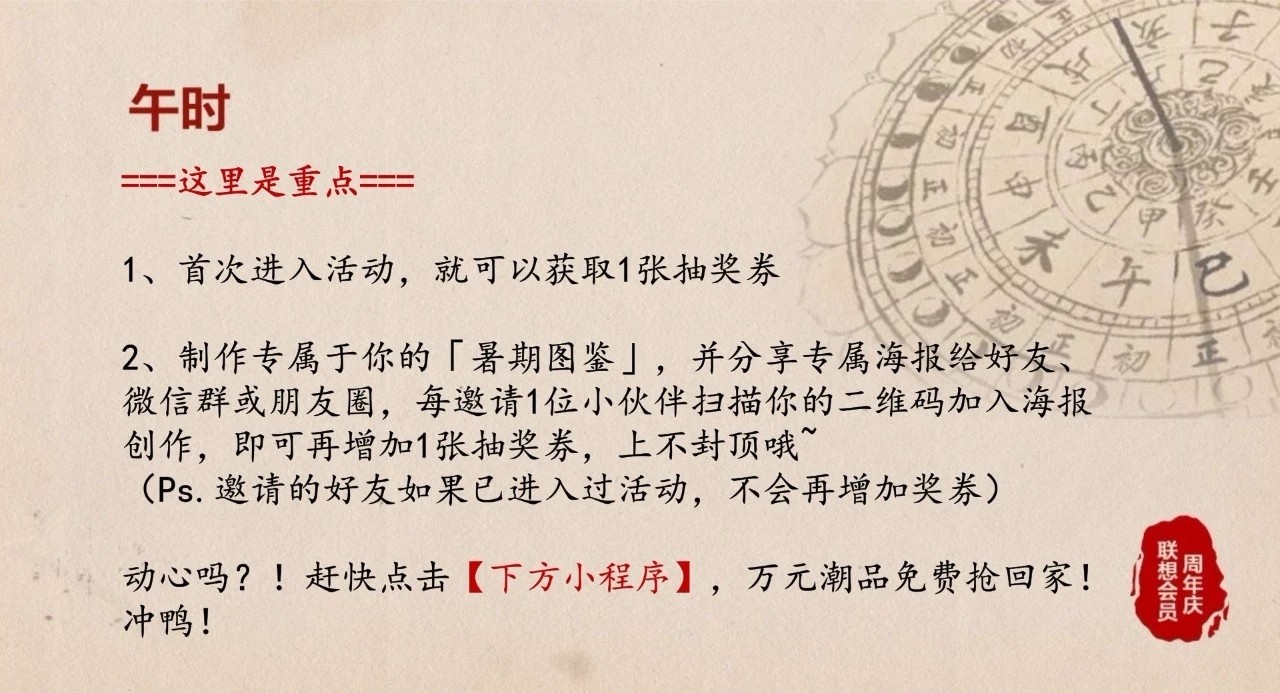 午时
===这里是重点===
1、首次进入活动，就可以获取1张抽奖券
2、制作专属于你的「暑期图鉴」，并分享专属海报给好友、
微信群或朋友圈，每邀请1位小伙伴扫描你的二维码加入海报
创作，即可再增加1张抽奖券，上不封顶哦~
（Ps.邀请的好友如果已进入过活动，不会再增加奖券）
动心吗？！赶快点击【下方小程序】，万元潮品免费抢回家！
冲鸭！
联想会员
周年庆
子
亥
戌
酉
申
未
午
巳
己
丁
丙
乙
甲
癸
壬
正
初
正
初
正
初
正
初
正
初
正